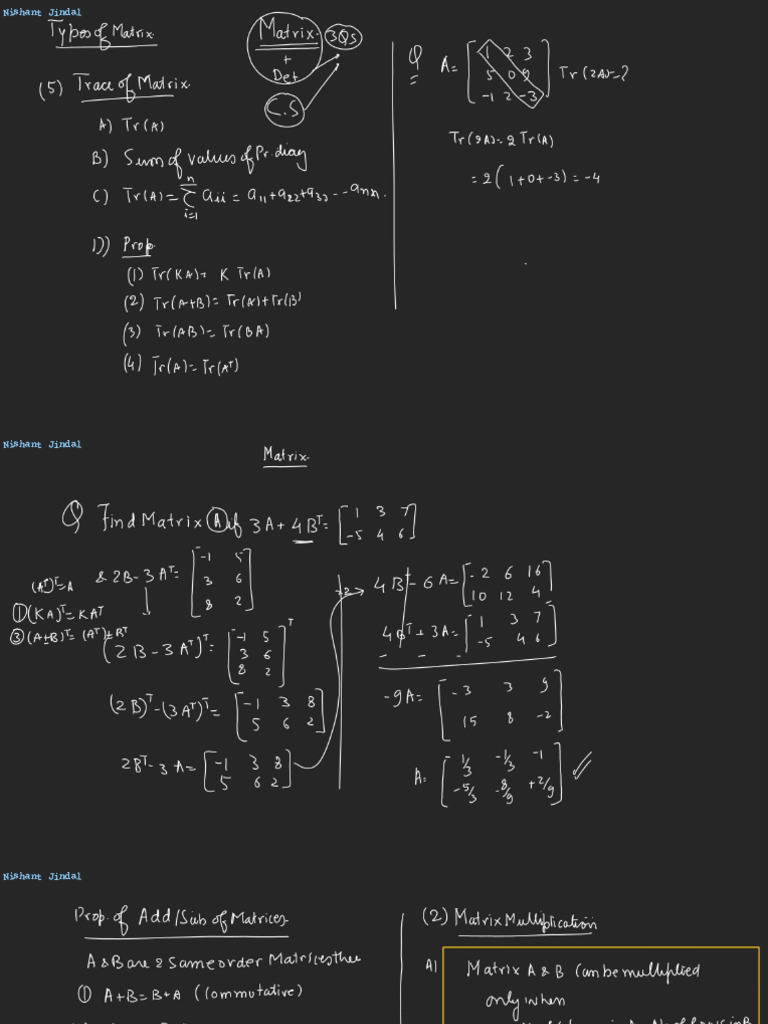 Nishant Jindal
Types of Matrix.
Matrix.
+
Det
3QS
C.S
(5) Trace of Matrix.
A) Tr(A)
B) Sum of values of Pr. diag
C) Tr(A) = n Σ i=1 aii = a11+a22+a33---ann.
D) Prop.
(1) Tr(KA) = K Tr(A)
(2) Tr(A+B) = Tr(A)+Tr(B)
(3) Tr(AB) = Tr(BA)
(4) Tr(A) = Tr(Aᵀ)
Q A = [1 2 3
5 0 9
-1 2 -3] Tr(2A)=?
Tr(2A) = 2 Tr(A)
= 2(1+0+-3) = -4
Nishant Jindal
Matrix.
Q Find Matrix A if 3A + 4Bᵀ = [-1 3 7
-5 4 6]
(Aᵀ)ᵀ=A
& 2B-3Aᵀ = [-1 5
3 6
8 2]
① (KA)ᵀ = KAᵀ
③ (A±B)ᵀ = (Aᵀ)±Bᵀ
(2B - 3Aᵀ)ᵀ = [-1 5
3 6
8 2]ᵀ
(2B)ᵀ-(3Aᵀ)ᵀ = [-1 3 8
5 6 2]
2Bᵀ-3A = [-1 3 8
5 6 2]
×2→ 4Bᵀ - 6A = [-2 6 16
10 12 4]
4Bᵀ + 3A = [1 3 7
-5 4 6]
- - -
-9A = [-3 3 9
15 8 -2]
A = [1/3 -1/3 -1
-5/3 -8/9 +2/9]
Nishant Jindal
Prop. of Add/Sub of Matrices.
A & B are 2 Same order Matrices then
① A+B=B+A (Commutative)
(2) Matrix Multiplication
A) Matrix A & B Can be multiplied
only when